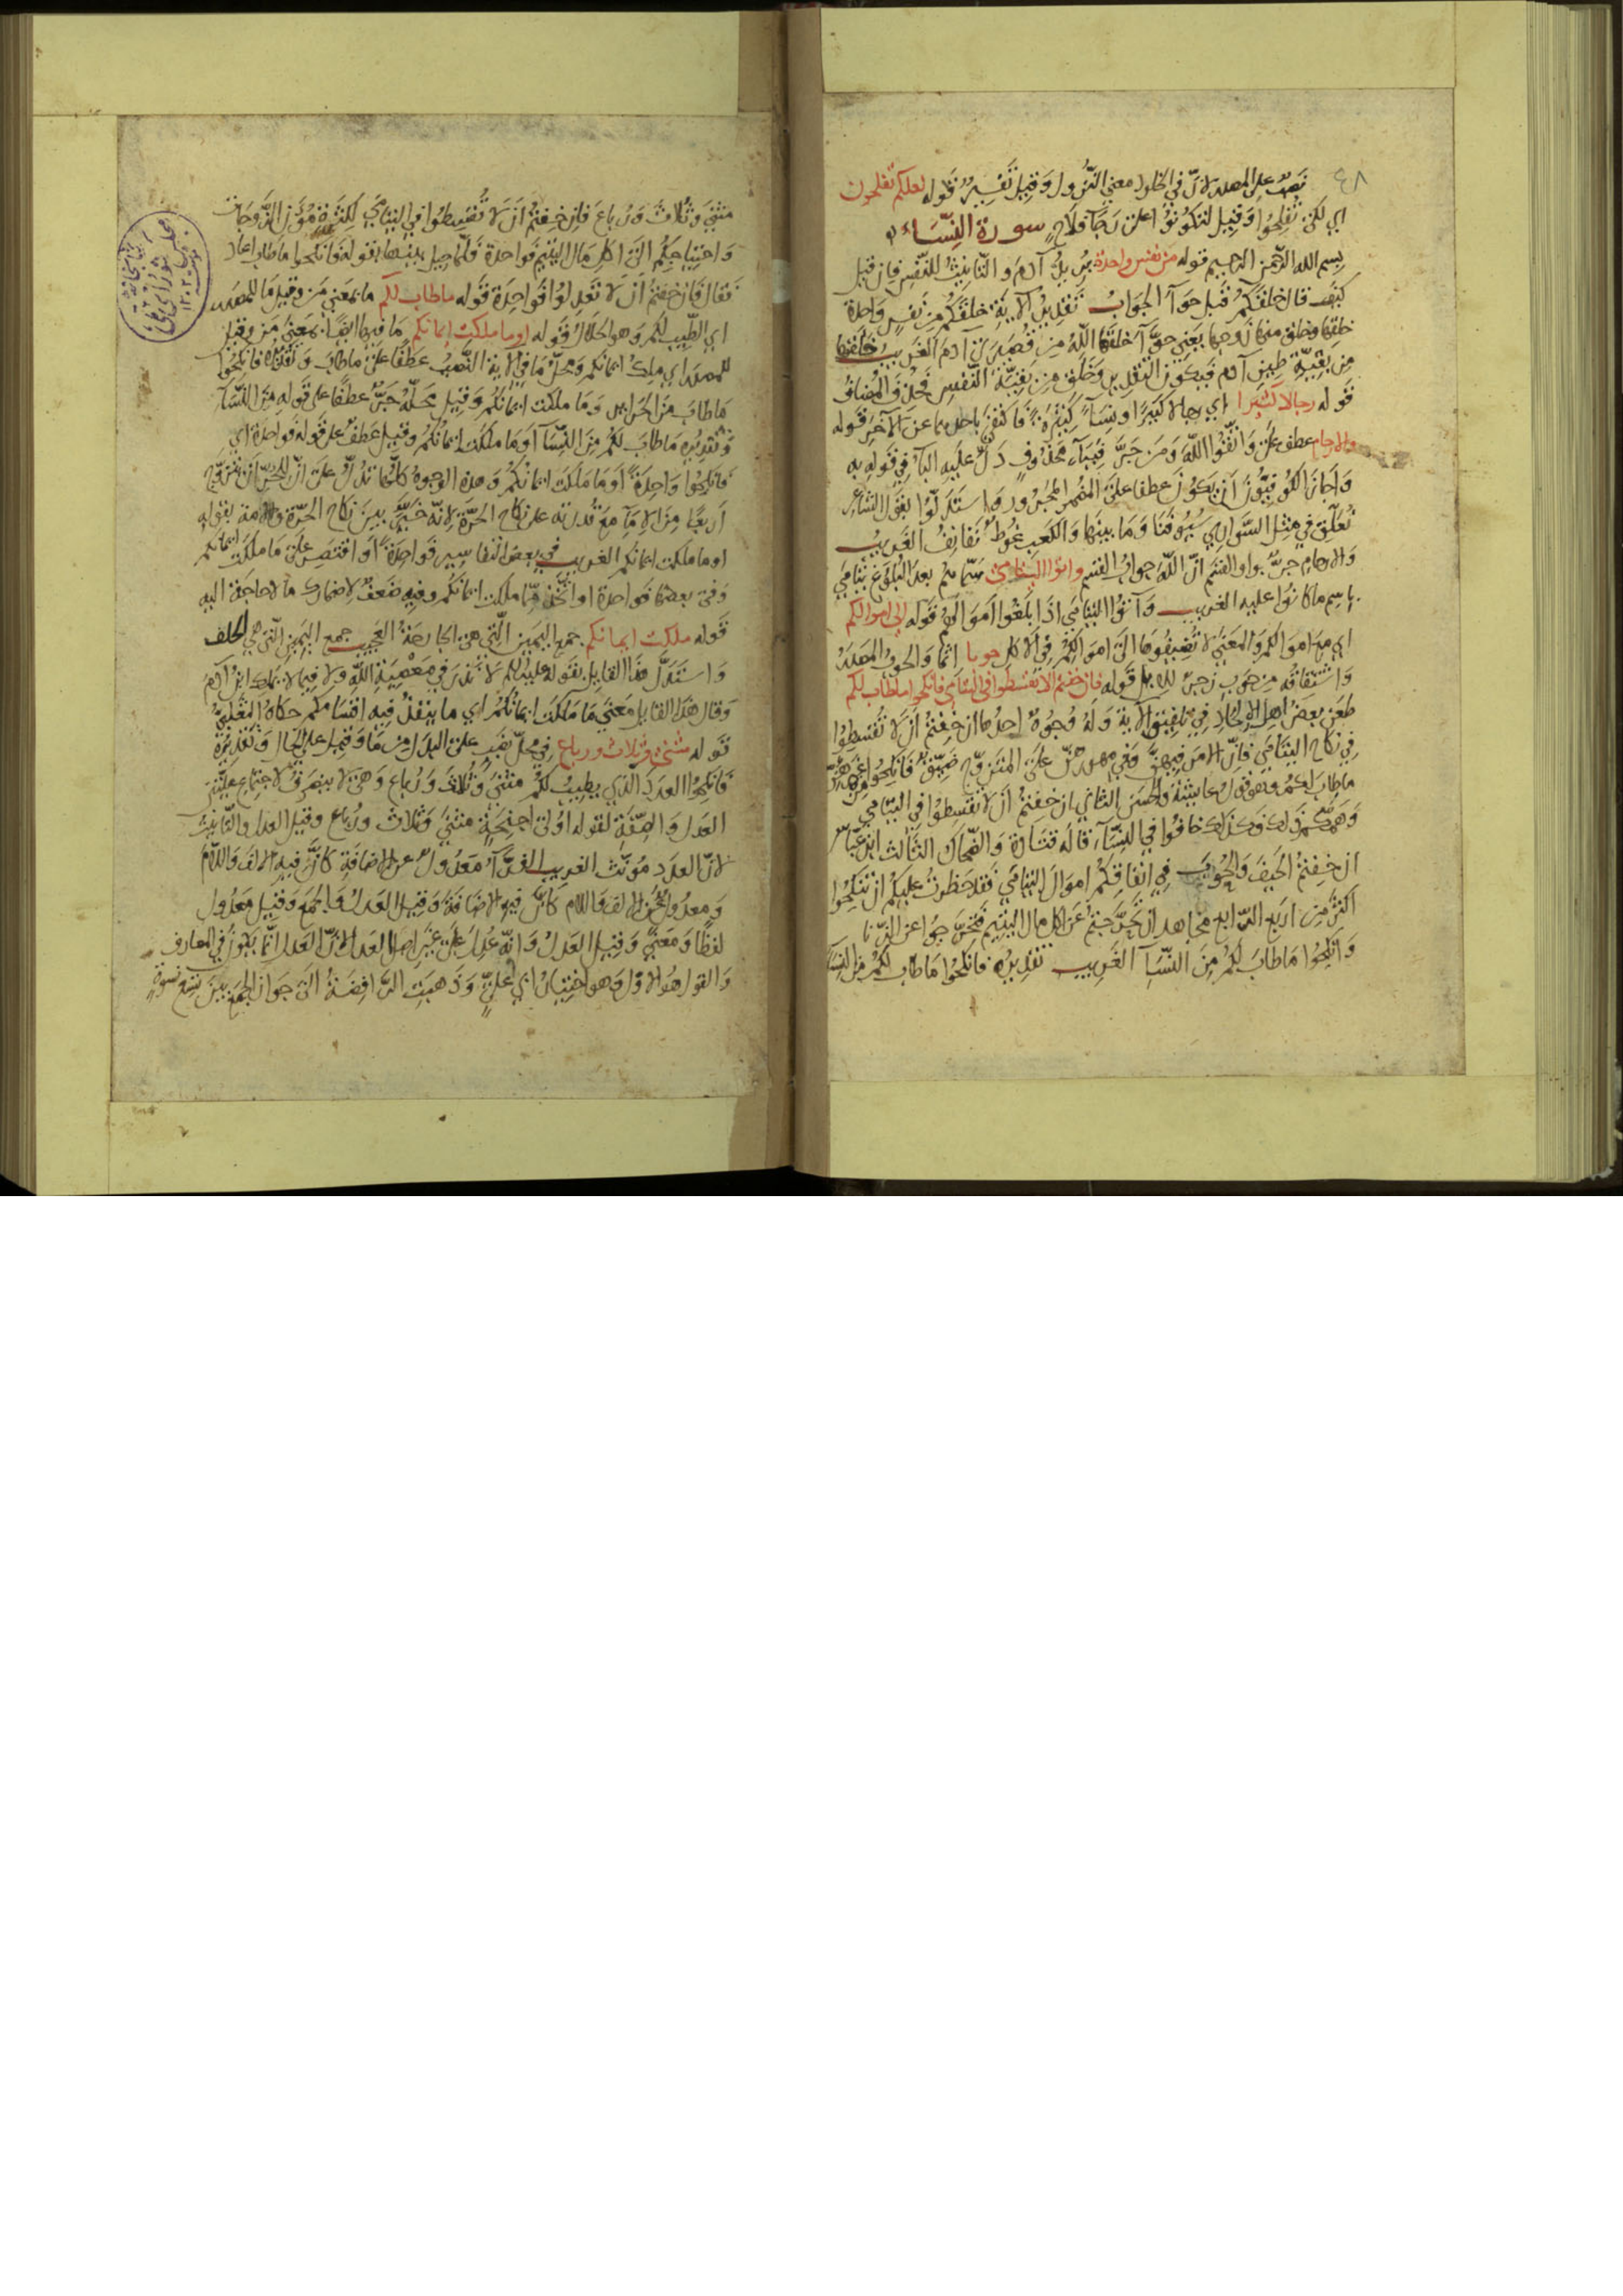 ٤٨
نصب على المصدر لان في ادخلوا معنى النزول وقيل تفسير قوله لعلكم تفلحون
اي لكي تفلحوا وقيل لتكونوا على رجآ فلاح سورة النساء
بسم الله الرحمن الرحيم قوله من نفس واحدة يريد آدم والتانيث للنفس فان قيل
كيف قال خلقكم قبل حوآ الجواب تقدير الاية خلقكم من نفس واحدة
خلقها وخلق منها زوجها يعني حوآ خلقها الله من قصيرى آدم الغريب خلقها
من بقية طين آدم فيكون التقدير وخلق من بقية النفس فحذف المضاف
قوله رجالا كثيرا اي رجالا كثيرا ونسآ كثيرة فاكتفى باحديهما عن الآخر قوله
والارحام عطف على واتقوا الله ومن جر فبباء محذوف دل عليه البآ في قوله به
واجاز الكوفيون ان يكون عطفا على المضمر المجرور واستدلوا بقول الشاعر
تعلق في مثل السواري سيوفنا وما بينها والكعب غوط نفانف الغريب
والارحام جر بواو القسم ان الله جواب القسم واتوا اليتامى سماهم بعد البلوغ يتامى
باسم ما كانوا عليه الغريب وآتوا اليتامى اذا بلغوا اموالهم قوله الى اموالكم
اي مع اموالكم والمعنى لا تضيفوها الى اموالكم في الاكل حوبا اثما والحوب المصدر
واشتقاقه من حوب زجر للابل قوله فان خفتم الا تقسطوا في اليتامى فانكحوا ما طاب لكم
طعن بعض اهل الالحاد في تلفيق الاية وله وجوه احدها ان خفتم ان لا تقسطوا
في نكاح اليتامى فان الامر فيهن وفي مهورهن على المتزوج ضيق فانكحوا غيرهن
ما طاب لكم وهو قول عايشة والحسن الثاني ان خفتم ان لا تقسطوا في اليتامى
وهمكم ذلك فكذلك خافوا في النسآء قاله قتادة والضحاك الثالث ابن عباس
ان خفتم الحيف والحوب في انفاقكم اموال اليتامى فقد حظرت عليكم ان تنكحوا
اكثر من اربع الرابع مجاهد ان تحرجتم عن اكل مال اليتيم فتحرجوا عن الزنا
وانكحوا ما طاب لكم من النسآ الغريب تقديره فانكحوا ما طاب لكم من النسآ
مثنى وثلاث ورباع فان خفتم ان لا تقسطوا في اليتامى لكثرة مؤن الزوجات
واحتياجكم الى اكل مال اليتيم فواحدة فلما حيل بينهما بقوله فانكحوا ما طاب اعاد
فقال فان خفتم ان لا تعدلوا فواحدة قوله ما طاب لكم ما بمعنى من وقيل ما للمصدر
اي الطيب لكم وهو الحلال قوله او ما ملكت ايمانكم ما فيها ايضا بمعنى من وقيل
للمصدر اي ملك ايمانكم ومحل ما في الاية النصب عطفا على ما طاب وتقديره فانكحوا
ما طاب من الحراير وما ملكت ايمانكم وقيل محله جر عطفا على قوله من النسآ
وتقديره ما طاب لكم من النسآ او ما ملكت ايمانكم وقيل عطف على قوله فواحدة اي
فانكحوا واحدة او ما ملكت ايمانكم وهذه الوجوه كلها تدل على ان للحر ان يتزوج
اربعا من الامآ مع قدرته على نكاح الحرة لانه خير بين نكاح الحرة والامة بقوله
او ما ملكت ايمانكم الغريب في بعض التفاسير فواحدة او اقتصر على ما ملكت ايمانكم
وفي بعضها فواحدة او اتخذ مما ملكت ايمانكم وفيه ضعف لاضمارك ما لا حاجة اليه
قوله ملكت ايمانكم جمع اليمين التي هي الجارحة العجيب جمع اليمين التي هي الحلف
واستدل هذا القايل بقوله عليه السلم لا نذر في معصية الله ولا فيما لا يملك ابن آدم
وقال هذا القايل معنى ما ملكت ايمانكم اي ما ينفذ فيه اقسامكم حكاه الثعلبي
قوله مثنى وثلاث ورباع في محل نصب على البدل من ما وقيل على الحال وتقديره
فانكحوا العدد الذي يطيب لكم مثنى وثلاث ورباع وهي لا ينصرف لاجتماع علتين
العدل والصفة لقوله اولى اجنحة مثنى وثلاث ورباع وقيل العدل والتانيث
لان العدد مونث الغريب الفرآ معدول عن الاضافة كان فيه الالف واللام
ومعدول عن الالف واللام كان فيه الاضافة وقيل العدل والجمع وقيل معدول
لفظا ومعنى وقيل العدل وانه عدل على غير اصل العدل لان العدل انما يكون في المعارف
والقول هو الاول وهو اختيار ابي علي وذهبت الرافضة الى جواز الجمع بين تسع نسوة